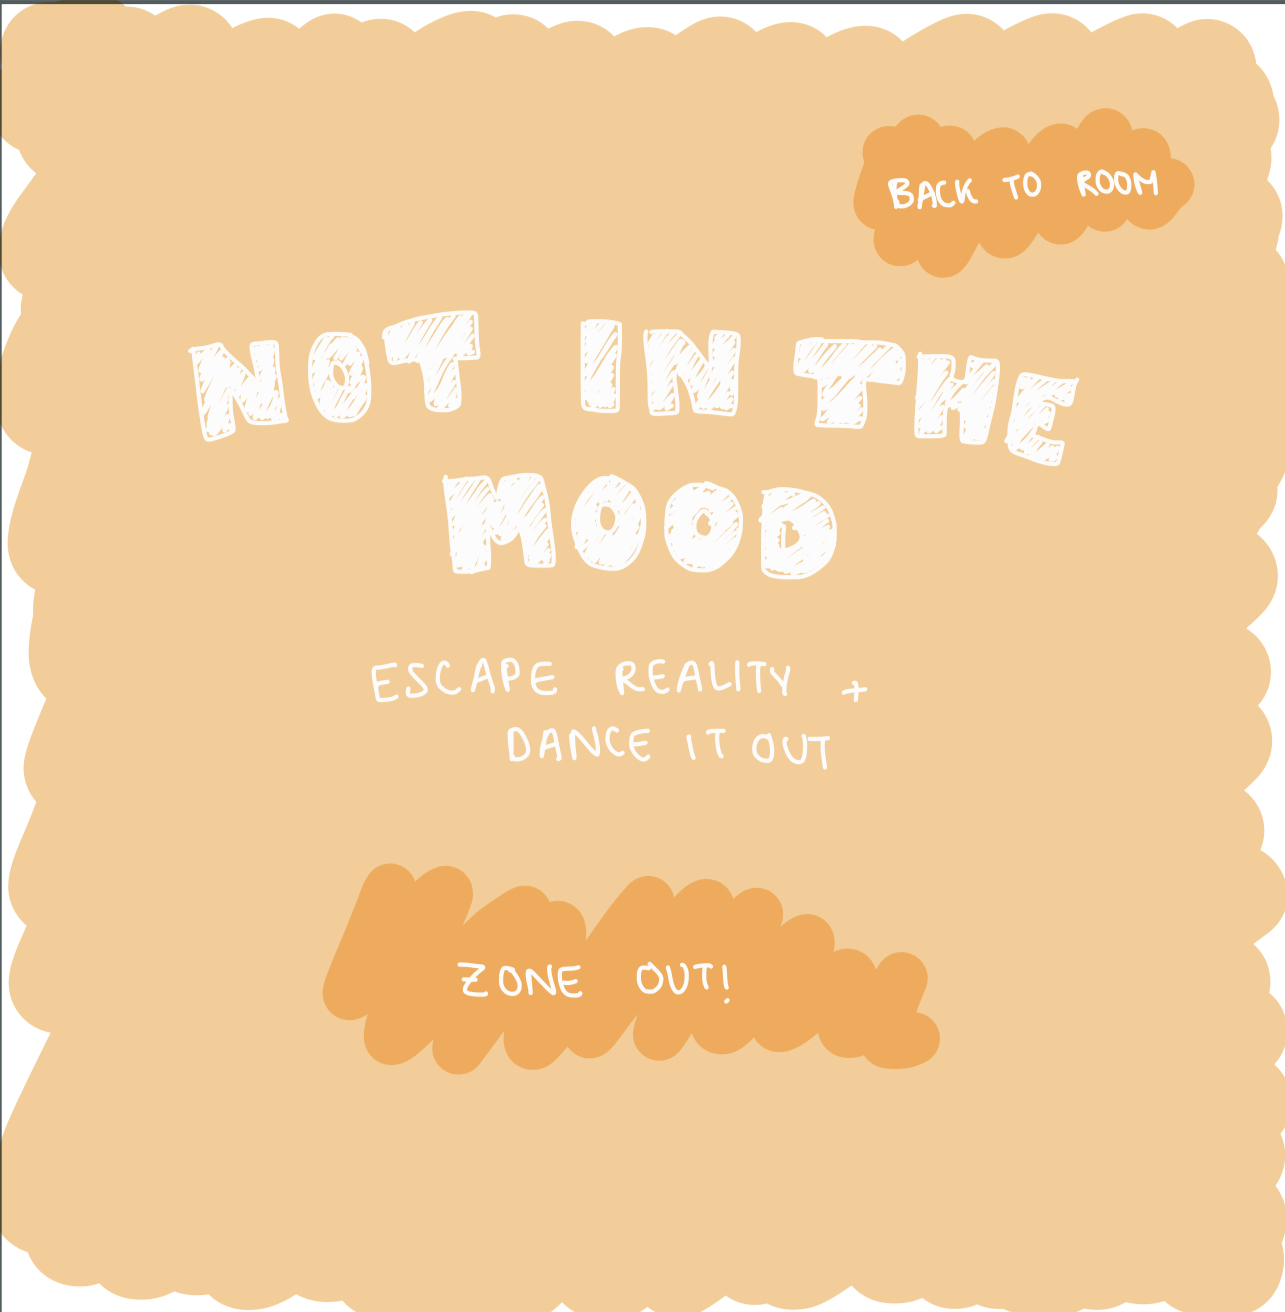 BACK TO ROOM
NOT IN THE
MOOD
ESCAPE REALITY +
DANCE IT OUT
ZONE OUT!